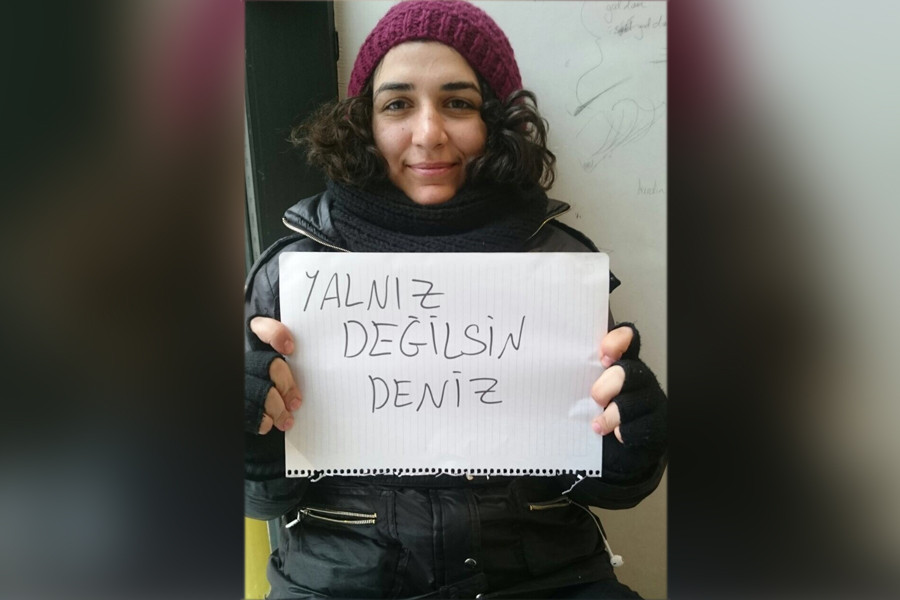 YALNIZ
DEĞİLSİN
DENİZ